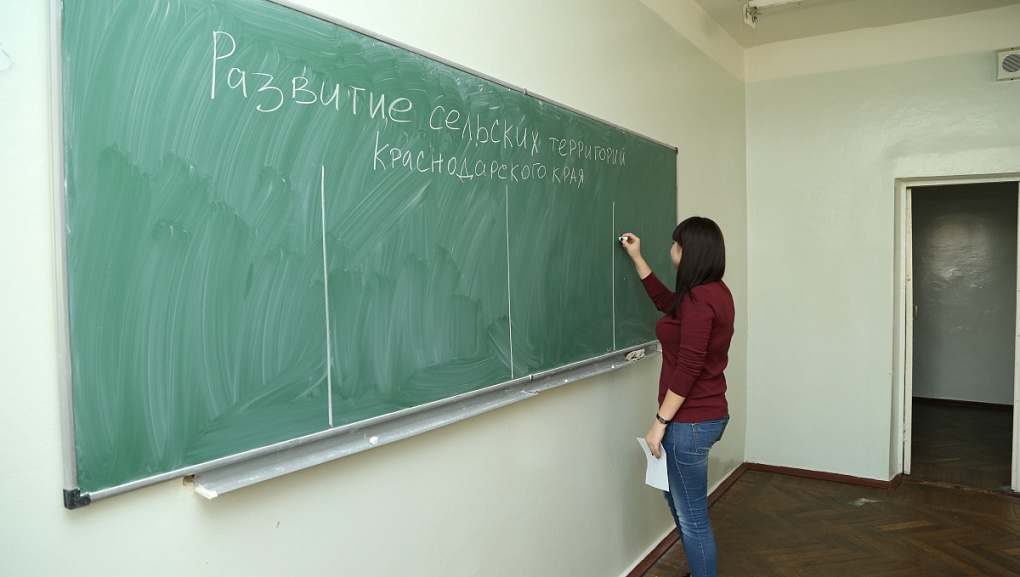 Развитие сельских территорий
Краснодарского края